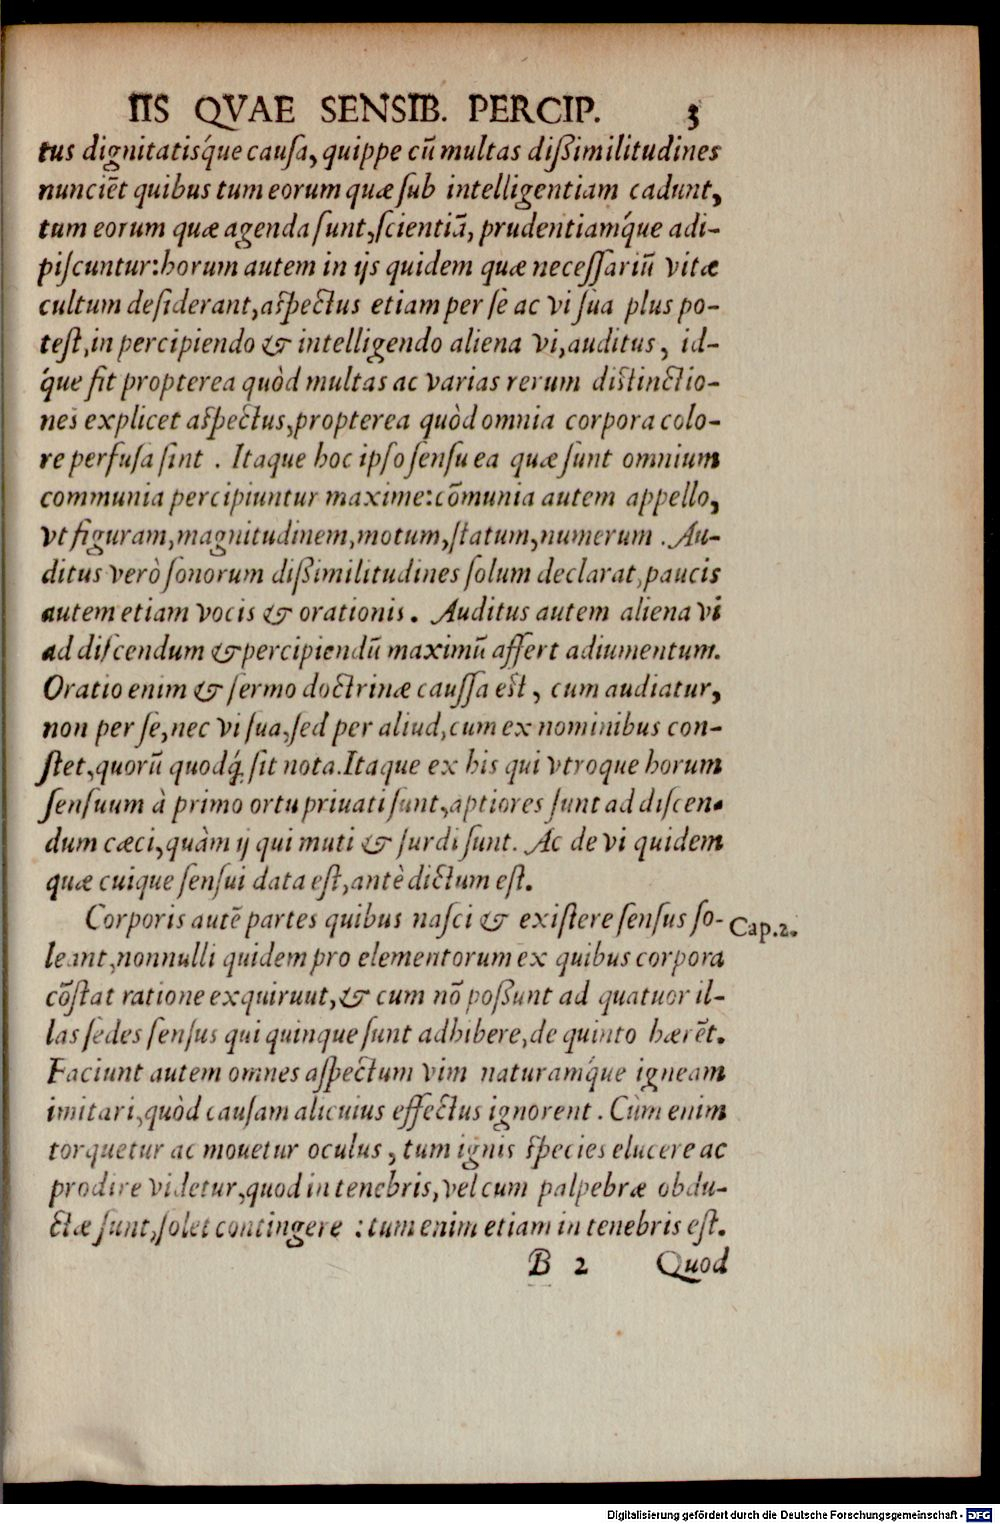 IIS QVAE SENSIB. PERCIP. 3
tus dignitatisq́ue causa, quippe cū multas dißimilitudines
nunciēt quibus tum eorum quæ sub intelligentiam cadunt,
tum eorum quæ agenda sunt, scientiā, prudentiamq́ue adi-
piscuntur: horum autem in ijs quidem quæ necessariū vitæ
cultum desiderant, aspectus etiam per se ac vi sua plus po-
test, in percipiendo & intelligendo aliena vi, auditus, id-
q́ue fit propterea quòd multas ac varias rerum distinctio-
nes explicet aspectus, propterea quòd omnia corpora colo-
re perfusa sint. Itaque hoc ipso sensu ea quæ sunt omnium
communia percipiuntur maxime: cōmunia autem appello,
vt figuram, magnitudinem, motum, statum, numerum. Au-
ditus verò sonorum dißimilitudines solum declarat, paucis
autem etiam vocis & orationis. Auditus autem aliena vi
ad discendum & percipiendū maximū affert adiumentum.
Oratio enim & sermo doctrinæ caussa est, cum audiatur,
non per se, nec vi sua, sed per aliud, cum ex nominibus con-
stet, quorū quodq́; sit nota. Itaque ex his qui vtroque horum
sensuum à primo ortu priuati sunt, aptiores sunt ad discen-
dum cæci, quàm ij qui muti & surdi sunt. Ac de vi quidem
quæ cuique sensui data est, antè dictum est.
Corporis autē partes quibus nasci & existere sensus so- Cap. 2.
leant, nonnulli quidem pro elementorum ex quibus corpora
cōstat ratione exquiruut, & cum nō poßunt ad quatuor il-
las sedes sensus qui quinque sunt adhibere, de quinto hærēt.
Faciunt autem omnes aspectum vim naturamq́ue igneam
imitari, quòd causam alicuius effectus ignorent. Cùm enim
torquetur ac mouetur oculus, tum ignis species elucere ac
prodire videtur, quod in tenebris, vel cum palpebræ obdu-
ctæ sunt, solet contingere: tum enim etiam in tenebris est.
B 2 Quod
Digitalisierung gefördert durch die Deutsche Forschungsgemeinschaft - DFG